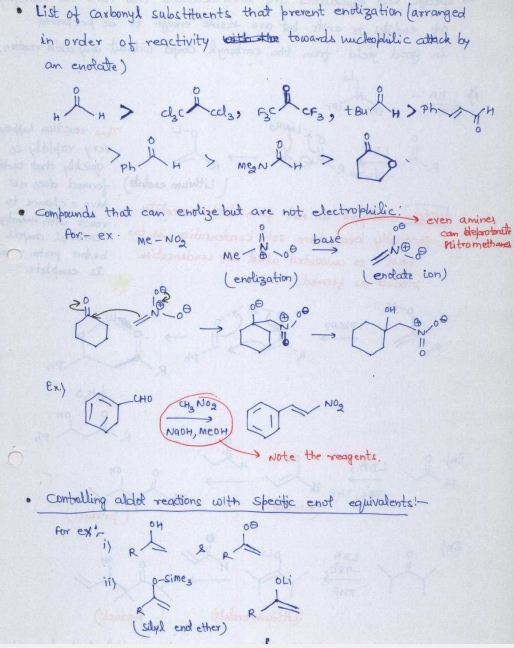 • List of carbonyl substituents that prevent enolization (arranged
in order of reactivity towards nucleophilic attack by
an enolate)
O O O O
H H > Cl3C CCl3, F3C CF3, tBu H > Ph H
O
> Ph H > Me2N H >
• Compounds that can enolize but are not electrophilic:
even amines
can deprotonate
Nitromethane
for:- ex. Me-NO2 Me N⊕ O⊖ base N⊕ O⊖
(enolization) (enolate ion)
O O⊖ N⊕ O⊖ → O⊖ N⊕ O⊖ → OH N⊕ O⊖
Ex:) CHO CH3NO2 NO2
NaOH, MeOH
→ Note the reagents.
• Controlling aldol reactions with Specific enol equivalents:-
For ex:-
i) OH & O⊖
R R
ii) O-SiMe3 OLi
R R
(silyl enol ether)